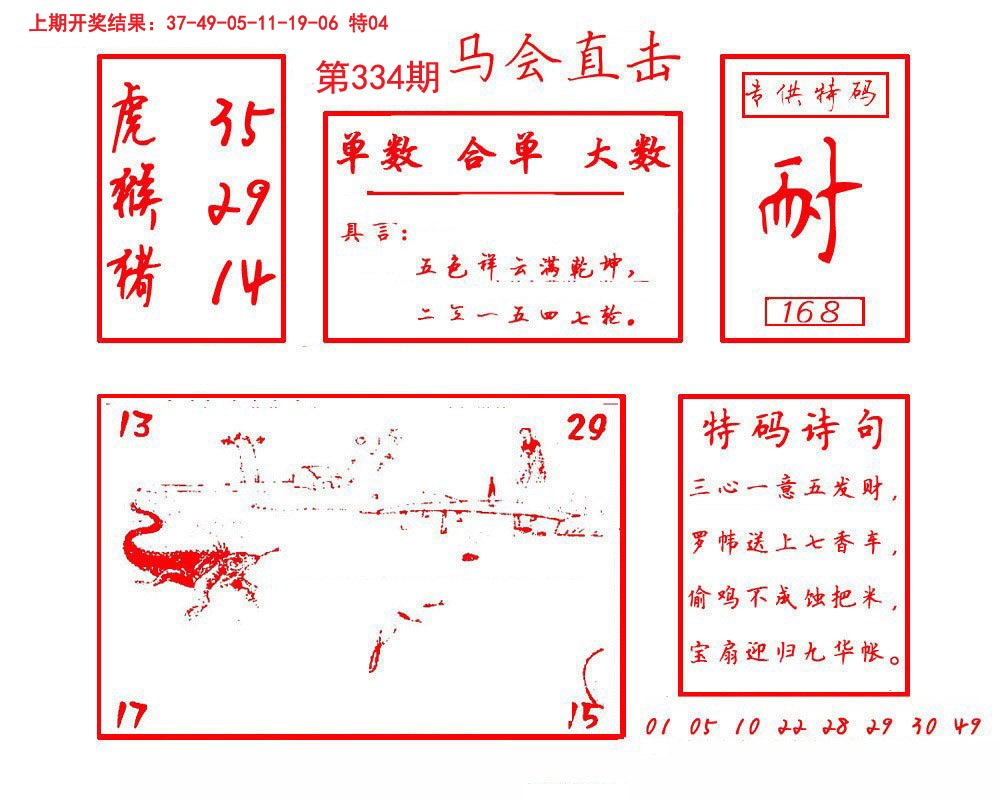 上期开奖结果：37-49-05-11-19-06 特04
第334期 马会直击
虎 35
猴 29
猪 14
单数 合单 大数
具言：
五色祥云满乾坤，
二三一五四七轮。
专供特码
耐
168
13
29
17
15
特码诗句
三心一意五发财，
罗帏送上七香车，
偷鸡不成蚀把米，
宝扇迎归九华帐。
01 05 10 22 28 29 30 49